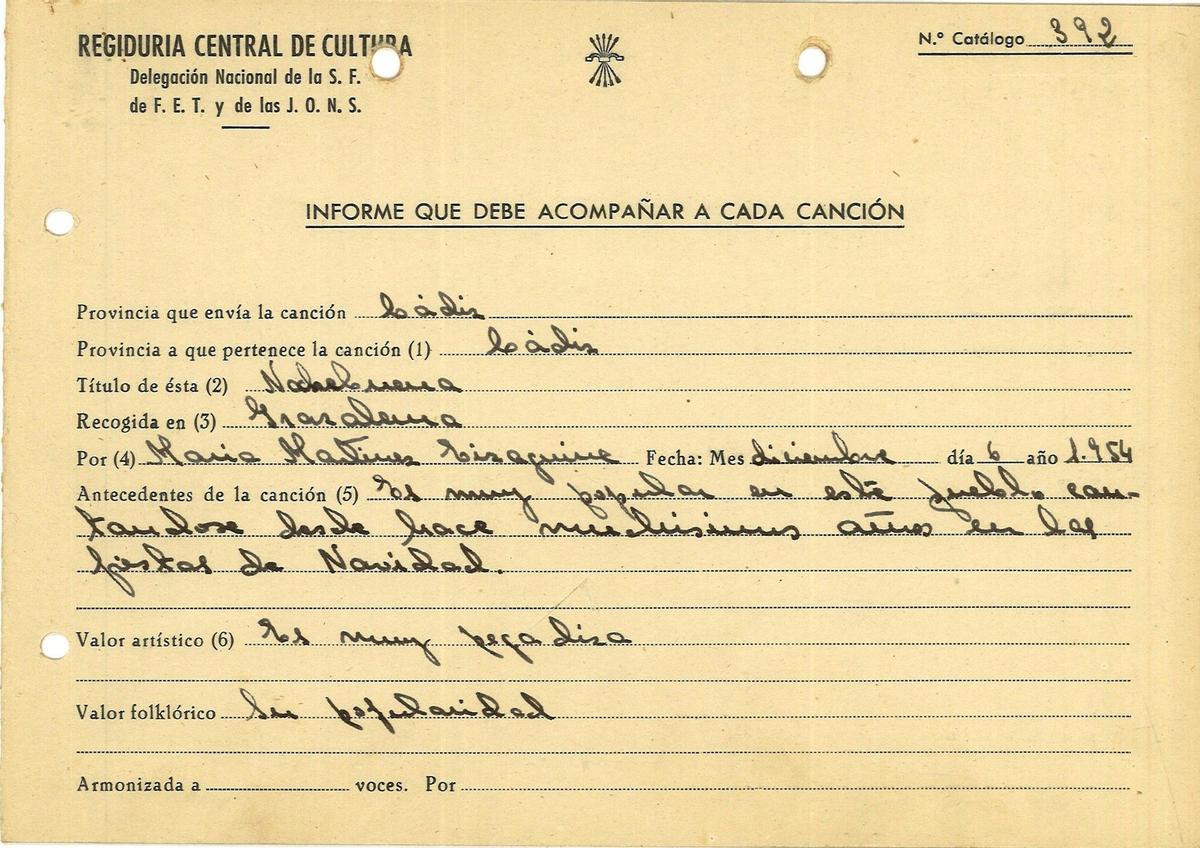 REGIDURIA CENTRAL DE CULTURA
Delegación Nacional de la S. F.
de F. E. T. y de las J. O. N. S.
N.º Catálogo 392
INFORME QUE DEBE ACOMPAÑAR A CADA CANCIÓN
Provincia que envía la canción Cádiz
Provincia a que pertenece la canción (1) Cádiz
Título de ésta (2) Nochebuena
Recogida en (3) Grazalema
Por (4) Maria Martinez Eizaguirre Fecha: Mes diciembre día 6 año 1.954
Antecedentes de la canción (5) Es muy popular en este pueblo can-
tandose desde hace muchisimos años en las
fiestas de Navidad.
Valor artístico (6) Es muy pegadiza
Valor folklórico Su popularidad
Armonizada a voces. Por